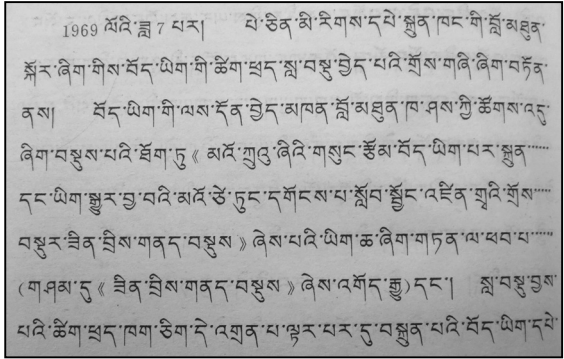 1969 ལོའི་ཟླ་ 7 པར། པེ་ཅིན་མི་རིགས་དཔེ་སྐྲུན་ཁང་གི་བློ་མཐུན་
སྐོར་ཞིག་གིས་བོད་ཡིག་གི་ཚིག་ཕྲད་སླ་བསྡུ་བྱེད་པའི་གྲོས་གཞི་ཞིག་བཏོན་
ནས། བོད་ཡིག་གི་ལས་དོན་བྱེད་མཁན་བློ་མཐུན་ཁ་ཤས་ཀྱི་ཚོགས་འདུ་
ཞིག་བསྡུས་པའི་ཐོག་ཏུ《 མའོ་ཀྲུའུ་ཞིའི་གསུང་རྩོམ་བོད་ཡིག་པར་སྐྲུན་······
དང་ཡིག་སྒྱུར་བྱ་བའི་མའོ་ཙེ་ཏུང་དགོངས་པ་སློབ་སྦྱོང་འཛིན་གྲྭའི་གྲོས་·····
བསྡུར་ཟིན་བྲིས་གནད་བསྡུས 》ཞེས་པའི་ཡིག་ཆ་ཞིག་གཏན་ལ་ཕབ་པ་······
(གཤམ་དུ《 ཟིན་བྲིས་གནད་བསྡུས 》ཞེས་འགོད་རྒྱུ)དང་། སླ་བསྡུ་བྱས་
པའི་ཚིག་ཕྲད་ཁག་ཅིག་དེ་འགྲན་པ་ལྟར་པར་དུ་བསྐྲུན་པའི་བོད་ཡིག་དཔེ་